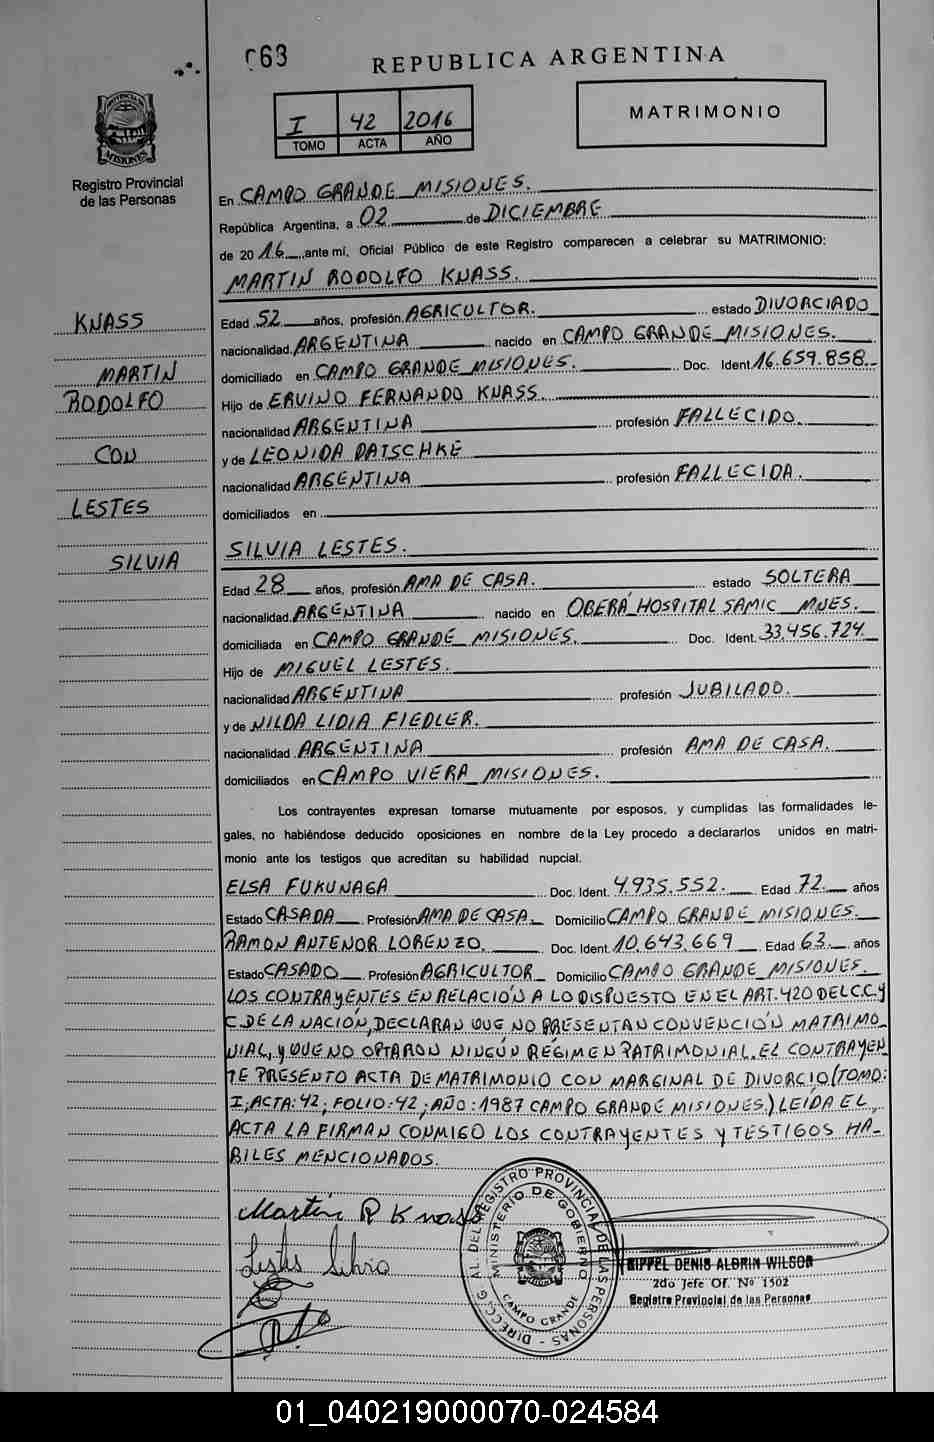 063
REPUBLICA ARGENTINA
I 42 2016
TOMO ACTA AÑO
MATRIMONIO
Registro Provincial
de las Personas
En CAMPO GRANDE MISIONES.
República Argentina, a 02 de DICIEMBRE
de 2016 ante mí, Oficial Público de este Registro comparecen a celebrar su MATRIMONIO:
MARTIN RODOLFO KNASS.
KNASS
MARTIN
RODOLFO
CON
LESTES
SILVIA
Edad 52 años, profesión AGRICULTOR. estado DIVORCIADO
nacionalidad ARGENTINA nacido en CAMPO GRANDE MISIONES.
domiciliado en CAMPO GRANDE MISIONES. Doc. Ident 16.659.858.
Hijo de ERVINO FERNANDO KNASS.
nacionalidad ARGENTINA profesión FALLECIDO.
y de LEONIDA DATSCHKE
nacionalidad ARGENTINA profesión FALLECIDA.
domiciliados en
SILVIA LESTES.
Edad 28 años, profesión AMA DE CASA. estado SOLTERA
nacionalidad ARGENTINA nacido en OBERÁ HOSPITAL SAMIC MNES.
domiciliada en CAMPO GRANDE MISIONES. Doc. Ident. 33.456.724.
Hijo de MIGUEL LESTES.
nacionalidad ARGENTINA profesión JUBILADO.
y de NILDA LIDIA FIEDLER.
nacionalidad ARGENTINA profesión AMA DE CASA.
domiciliados en CAMPO VIERA MISIONES.
Los contrayentes expresan tomarse mutuamente por esposos, y cumplidas las formalidades le-
gales, no habiéndose deducido oposiciones en nombre de la Ley procedo a declararlos unidos en matri-
monio ante los testigos que acreditan su habilidad nupcial.
ELSA FUKUNAGA Doc. Ident. 4.935.552. Edad 72. años
Estado CASADA Profesión AMA DE CASA. Domicilio CAMPO GRANDE MISIONES.
RAMON ANTENOR LORENZO. Doc. Ident. 10.643.669 Edad 63. años
Estado CASADO Profesión AGRICULTOR Domicilio CAMPO GRANDE MISIONES.
LOS CONTRAYENTES EN RELACIÓN A LO DISPUESTO EN EL ART. 420 DEL C.C.Y
C. DE LA NACIÓN, DECLARAN QUE NO PRESENTAN CONVENCIÓN MATRIMO_
NIAL, Y QUE NO OPTARON NINGÚN REGIMEN PATRIMONIAL. EL CONTRAYEN_
TE PRESENTO ACTA DE MATRIMONIO CON MARGINAL DE DIVORCIO (TOMO:
I; ACTA: 42; FOLIO: 42; AÑO: 1987 CAMPO GRANDE MISIONES.) LEÍDA EL
ACTA LA FIRMAN CONMIGO LOS CONTRAYENTES Y TESTIGOS HA_
BILES MENCIONADOS.
Martin R Knass
Lestes Silvia
DIRECC. G. AL. DEL REGISTRO PROVINCIAL DE LAS PERSONAS
MINISTERIO DE GOBIERNO
CAMPO GRANDE
RIPPEL DENIS ALBRIN WILSON
2do Jefe Of. Nº 1502
Registro Provincial de las Personas
01_040219000070-024584